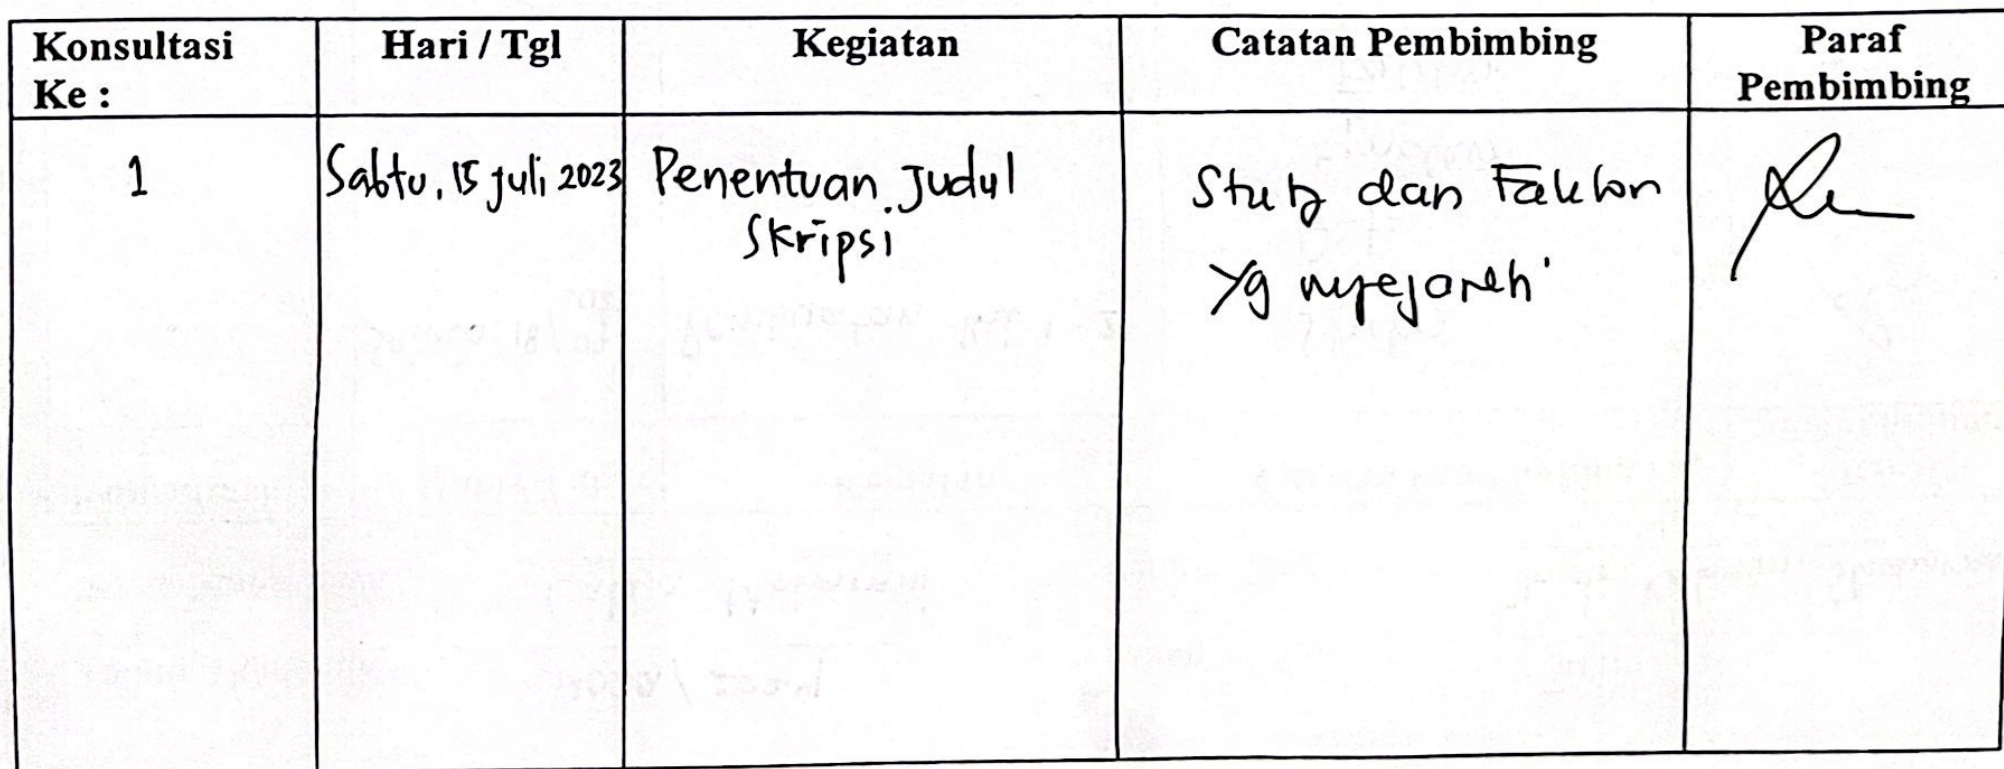 Konsultasi Ke :
Hari / Tgl
Kegiatan
Catatan Pembimbing
Paraf Pembimbing
1
Sabtu, 15 Juli 2023
Penentuan Judul
Skripsi
dan Faktor
yg